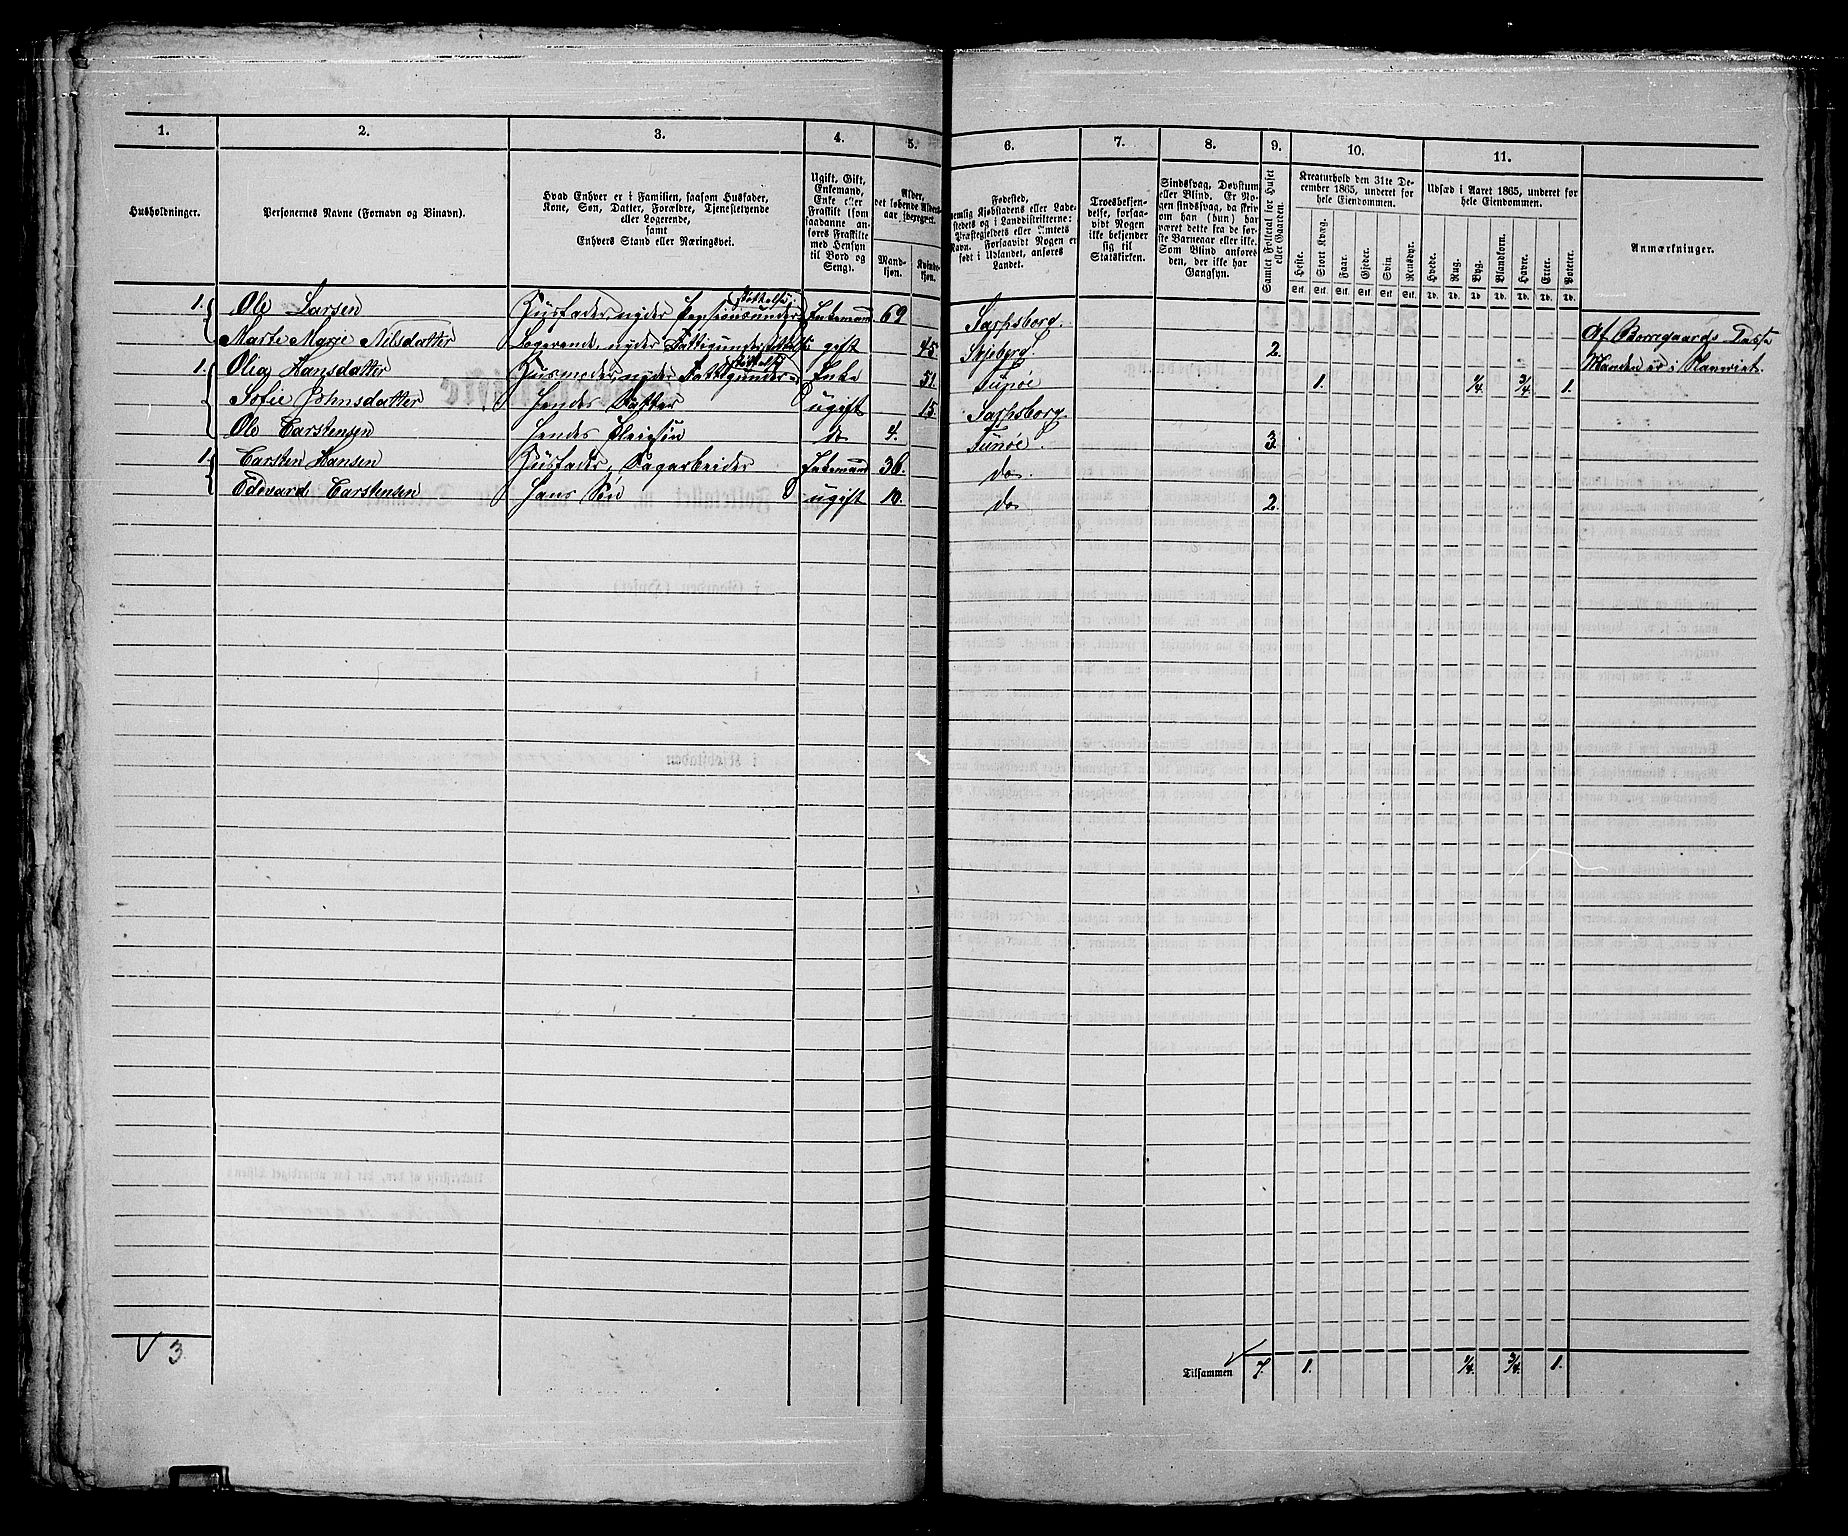 1. 2. 3. 4. 5. 6. 7. 8. 9. 10. 11.
Husholdninger.
Personernes Navne (Fornavn og Binavn).
Hvad Enhver er i Familien, saasom Husfader,
Kone, Søn, Datter, Forældre, Tjenestetyende
eller Logerende,
samt
Enhvers Stand eller Næringsvei.
Ugift, Gift,
Enkemand,
Enke eller
Fraskilt (som
saadanne an-
føres Fraskilte
med Hensyn
til Bord og
Seng).
Alder,
det løbende Alders-
aar iberegnet.
Mand-
kjøn.
Kvinde-
kjøn.
Fødested,
nemlig Kjøbstadens eller Lade-
stedets og i Landdistrikterne:
Præstegjeldets eller Amtets
Navn. Forsaavidt Nogen er
født i Udlandet, anføres
Landet.
Troesbekjen-
delse, forsaa-
vidt Nogen
ikke bekjender
sig til
Statskirken.
Sindssvag, Døvstum
eller Blind. Er No-
gen sindssvag, da skriv
om han (hun) har
været dette fra de før-
ste Barneaar eller ikke.
Som Blind anføres
den, der ikke har
Gangsyn.
Samlet Folketal for Huset
eller Gaarden.
Kreaturhold den 31te De-
cember 1865, underet for
hele Eiendommen.
Heste. Stort Kvæg. Faar. Gjeder. Svin. Rensdyr.
Stk. Stk. Stk. Stk. Stk. Stk.
Udsæd i Aaret 1865, underet for
hele Eiendommen.
Hvede. Rug. Byg. Blandkorn. Havre. Erter. Poteter.
Td. Td. Td. Td. Td. Td. Td.
Anmærkninger.
1. Ole Larsen Husfader, nyder Pensionsunderstøttelse. Enkemand 69 Sarpsborg
Marte Marie Nilsdatter Logerende, nyder Fattigunderstøttelse gift 45. Skjeberg 2. Af Borregaards
Manden er i
1. Olea Hansdatter Husmoder, nyder Fattigunderstøttelse Enke 51. Tunøe 1. 1/4. 3/4. 1.
Sofie Johnsdatter Hendes Datter ugift 15 Sarpsborg
Ole Carstensen Hendes Pleiesøn do 4. Tunøe 3.
1. Carsten Hansen Husfader, Dagarbeider Enkemand 36. do
Edevard Carstensen Hans Søn ugift 10. do 2.
3 Tilsammen 7. 1. 1/4. 3/4. 1.